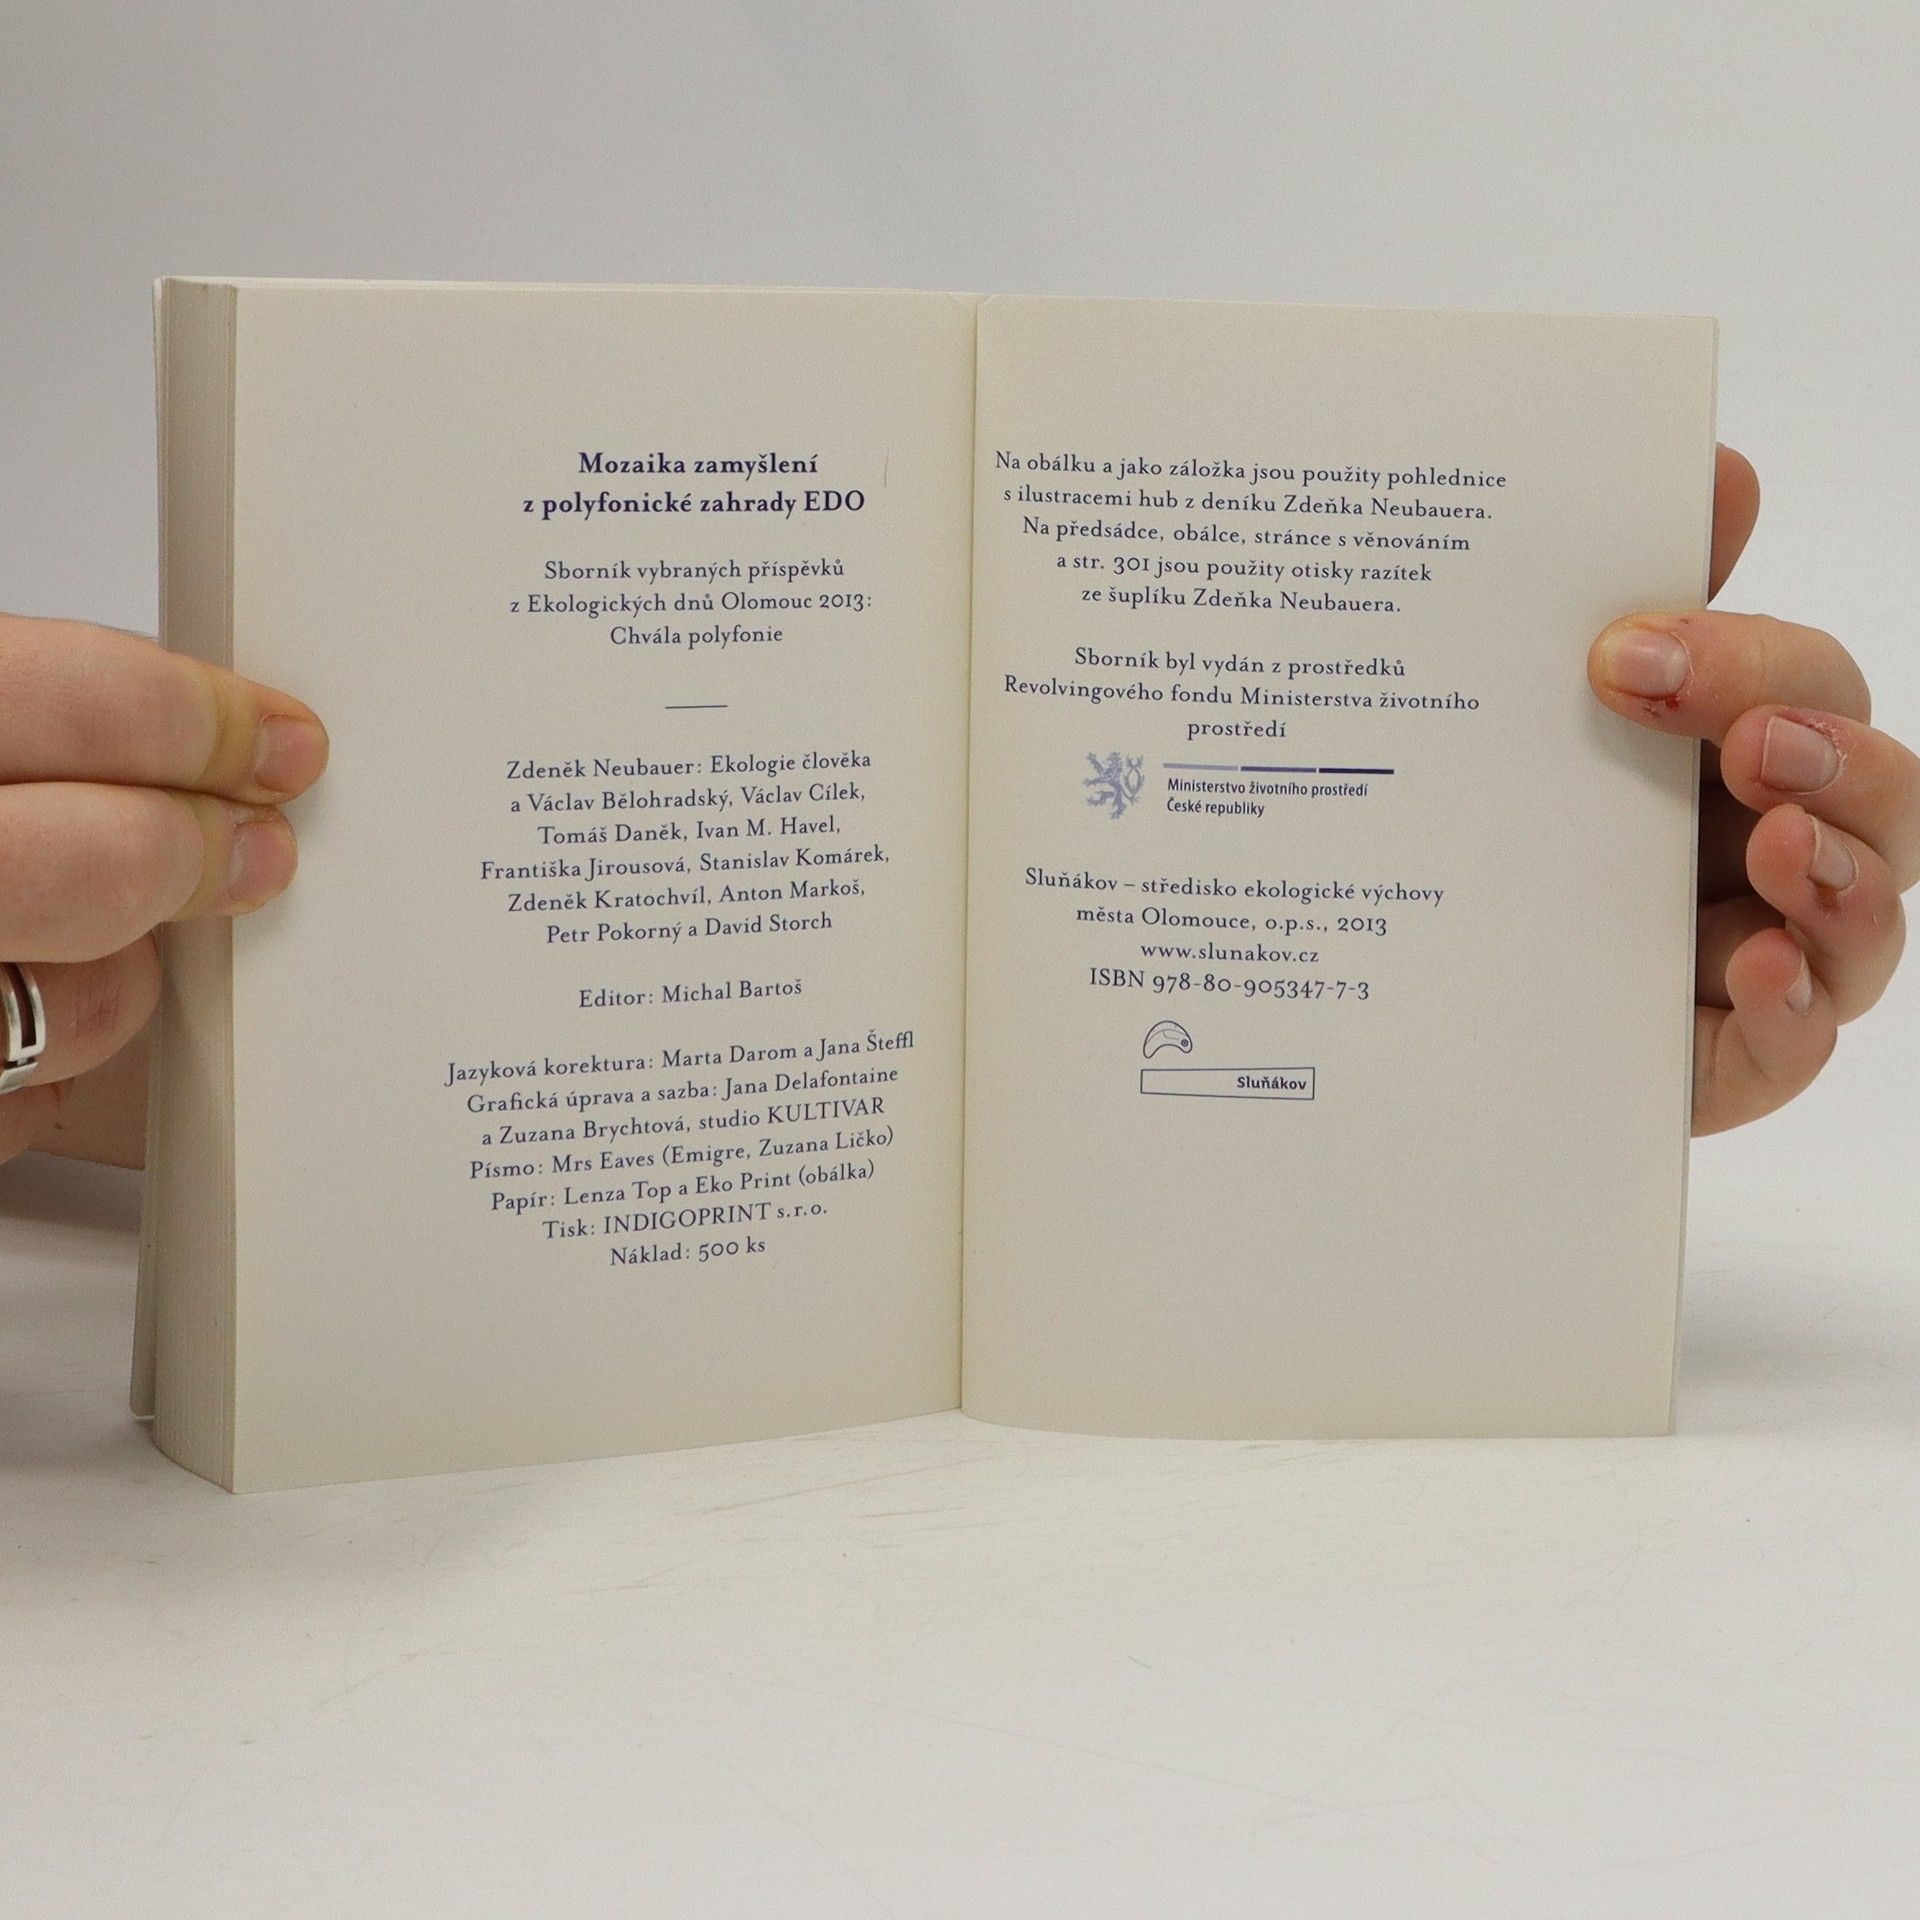 Mozaika zamyšlení
z polyfonické zahrady EDO
Sborník vybraných příspěvků
z Ekologických dnů Olomouc 2013:
Chvála polyfonie
Zdeněk Neubauer: Ekologie člověka
a Václav Bělohradský, Václav Cílek,
Tomáš Daněk, Ivan M. Havel,
Františka Jirousová, Stanislav Komárek,
Zdeněk Kratochvíl, Anton Markoš,
Petr Pokorný a David Storch
Editor: Michal Bartoš
Jazyková korektura: Marta Darom a Jana Šteffl
Grafická úprava a sazba: Jana Delafontaine
a Zuzana Brychtová, studio KULTIVAR
Písmo: Mrs Eaves (Emigre, Zuzana Ličko)
Papír: Lenza Top a Eko Print (obálka)
Tisk: INDIGOPRINT s.r.o.
Náklad: 500 ks
Na obálku a jako záložka jsou použity pohlednice
s ilustracemi hub z deníku Zdeňka Neubauera.
Na předsádce, obálce, stránce s věnováním
a str. 301 jsou použity otisky razítek
ze šuplíku Zdeňka Neubauera.
Sborník byl vydán z prostředků
Revolvingového fondu Ministerstva životního
prostředí
Ministerstvo životního prostředí
České republiky
Sluňákov – středisko ekologické výchovy
města Olomouce, o.p.s., 2013
www.slunakov.cz
ISBN 978-80-905347-7-3
Sluňákov